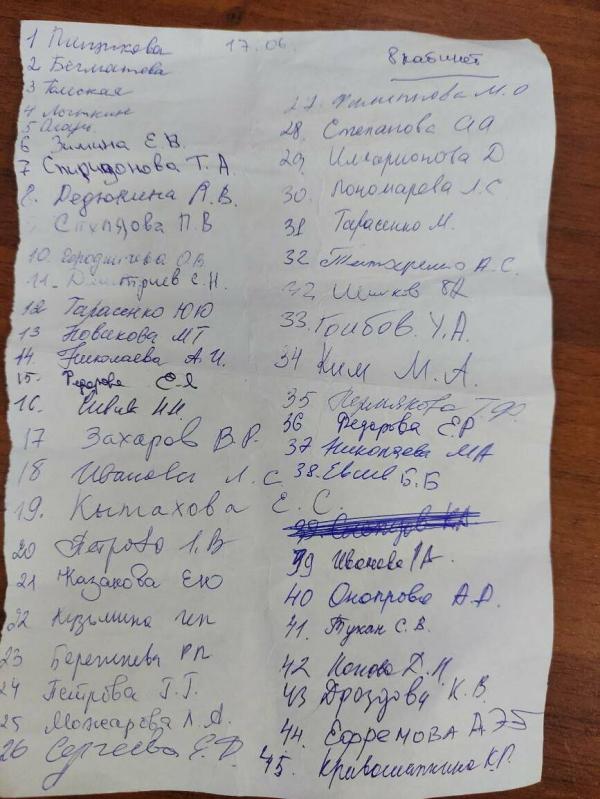 17.06.
8 кабинет
1 Пищикова
2 Бегматова
3 Томская
4 Логткин
5
6 Зимина Е.В.
7 Спиридонова Т.А
8. Дедюкина А.В.
Ступядова П.В
10. Бородичева О.В
11. Дмитриев С.Н.
12 Тарасенко Ю Ю
13 Новикова М Г
14 Николаева А И.
15. Федорова Е.Я
16. Н.Н.
17 Захаров В.Р.
18 Иванова Л.С
19. Кытахова Е.С.
20 Петрова Л.В
21 Казакова Е Ю
22 Кузьмина
23 Бережнева Р П
24 Петрова Г.Г.
25 Можарова Л.А.
26 Сергеева Е.Ф
27. Филиппова М.О
28. Степанова А А
29. Илларионова Д
30. Пономарева Л.С
31 Тарасенко М.
32 А.С.
32
33. Гоибов. У.А.
34 Ким М.А.
35 Пермякова Т.Ф.
36 Федорова Е.Р
37 Николаева МА
38. Евсив Б.Б
39 Иванова А.
40 Онопрова А.А.
41. Тукан С.В.
42 Попова Д.М.
43 Дроздова К.В.
44. ЕФРЕМОВА А.Э
45. Кривошапкина К.П.